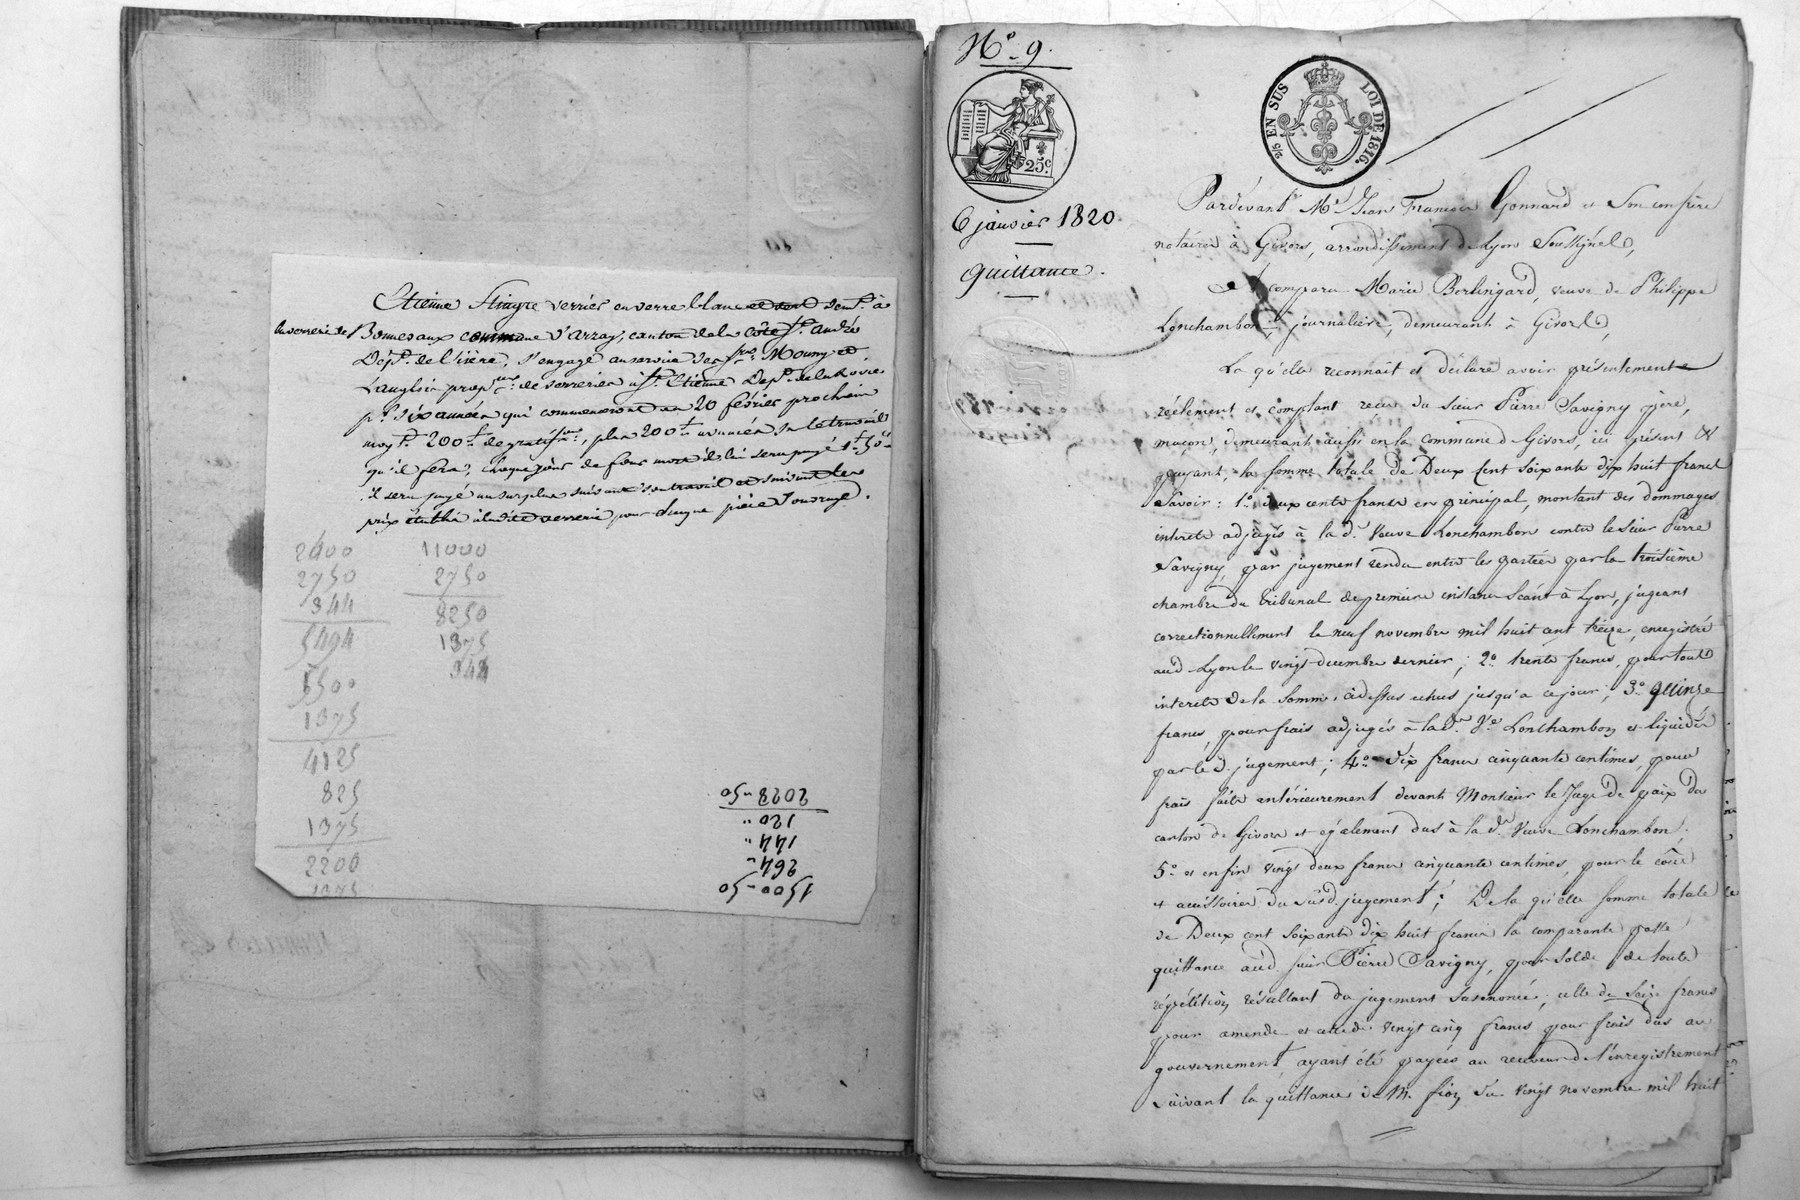 Etienne verrier en verre blanc dem.t à
la verrerie de Bonnevaux commune d'Arzay, canton de la côte S.t André
Dép.t de l'isère, s'engage au service des S.rs Mouny et
Langlois prop.res de verreries à S.t Etienne Dép.t de la Loire
p.r six années qui commenceront au 20 février prochain
moy.t 200 f de gratif.ion, plus 200 f avancés sur le travail
qu'il fera, chaque jour de four mort il lui sera payé 1 f 50 c
il sera payé au surplus suivant son travail et suivant les
prix établis à ladite verrerie pour chaque pièce d'ouvrage.
2400 11000
2750 2750
344 8250
5494 1375
5500 344
1375
4125
825
1375
2200
1375
1500 - 50
264 "
144 "
120 "
2028 - 50
N.o 9.
25c.
2/5 EN SUS LOI DE 1816.
6 janvier 1820.
quittance.
Pardevant M.e Jean François Gonnard et son confrère
notaires à Givors, arrondissement de Lyon soussignés,
A comparu Marie Berlingard, veuve de Philippe
Lonchambon, journalière, demeurant à Givors,
La qu'elle reconnait et déclare avoir présentement
réelement et comptant reçu du sieur Pierre Savigny père,
maçon, demeurant aussi en la commune de Givors, ici présent &
payant, la somme totale de Deux Cent soixante dix huit francs
Savoir: 1.o deux cents francs en principal, montant des dommages
interets adjugés à la d.e Veuve Lonchambon contre le sieur Pierre
Savigny, par jugement rendu entre les parties par la troisième
chambre du tribunal de premiere instance séant à Lyon, jugeant
correctionnellement le neuf novembre mil huit cent treize, enregistré
aud. Lyon le vingt decembre dernier; 2.o trente francs, pour tout
interets de la somme cidessus echus jusqu'à ce jour; 3.o quinze
francs, pour frais adjugés à la d.e V.e Lonchambon et liquidés
par le d. jugement; 4.o dix francs cinquante centimes, pour
frais faits antérieurement devant Monsieur le Juge de paix du
canton de Givors et également dus à la d.e Veuve Lonchambon;
5.o et enfin vingt deux francs cinquante centimes, pour le coût
et accessoires du susd. jugement; De la qu'elle somme totale
de Deux cent soixante dix huit francs la comparante passe
quittance aud. sieur Pierre Savigny, pour solde de toute
répétition résultant du jugement susenoncé; celle de seize francs
pour amende et celle de vingt cinq francs pour frais dus au
gouvernement, ayant été payées au receveur de l'enregistrement
suivant la quittance de M. du vingt novembre mil huit